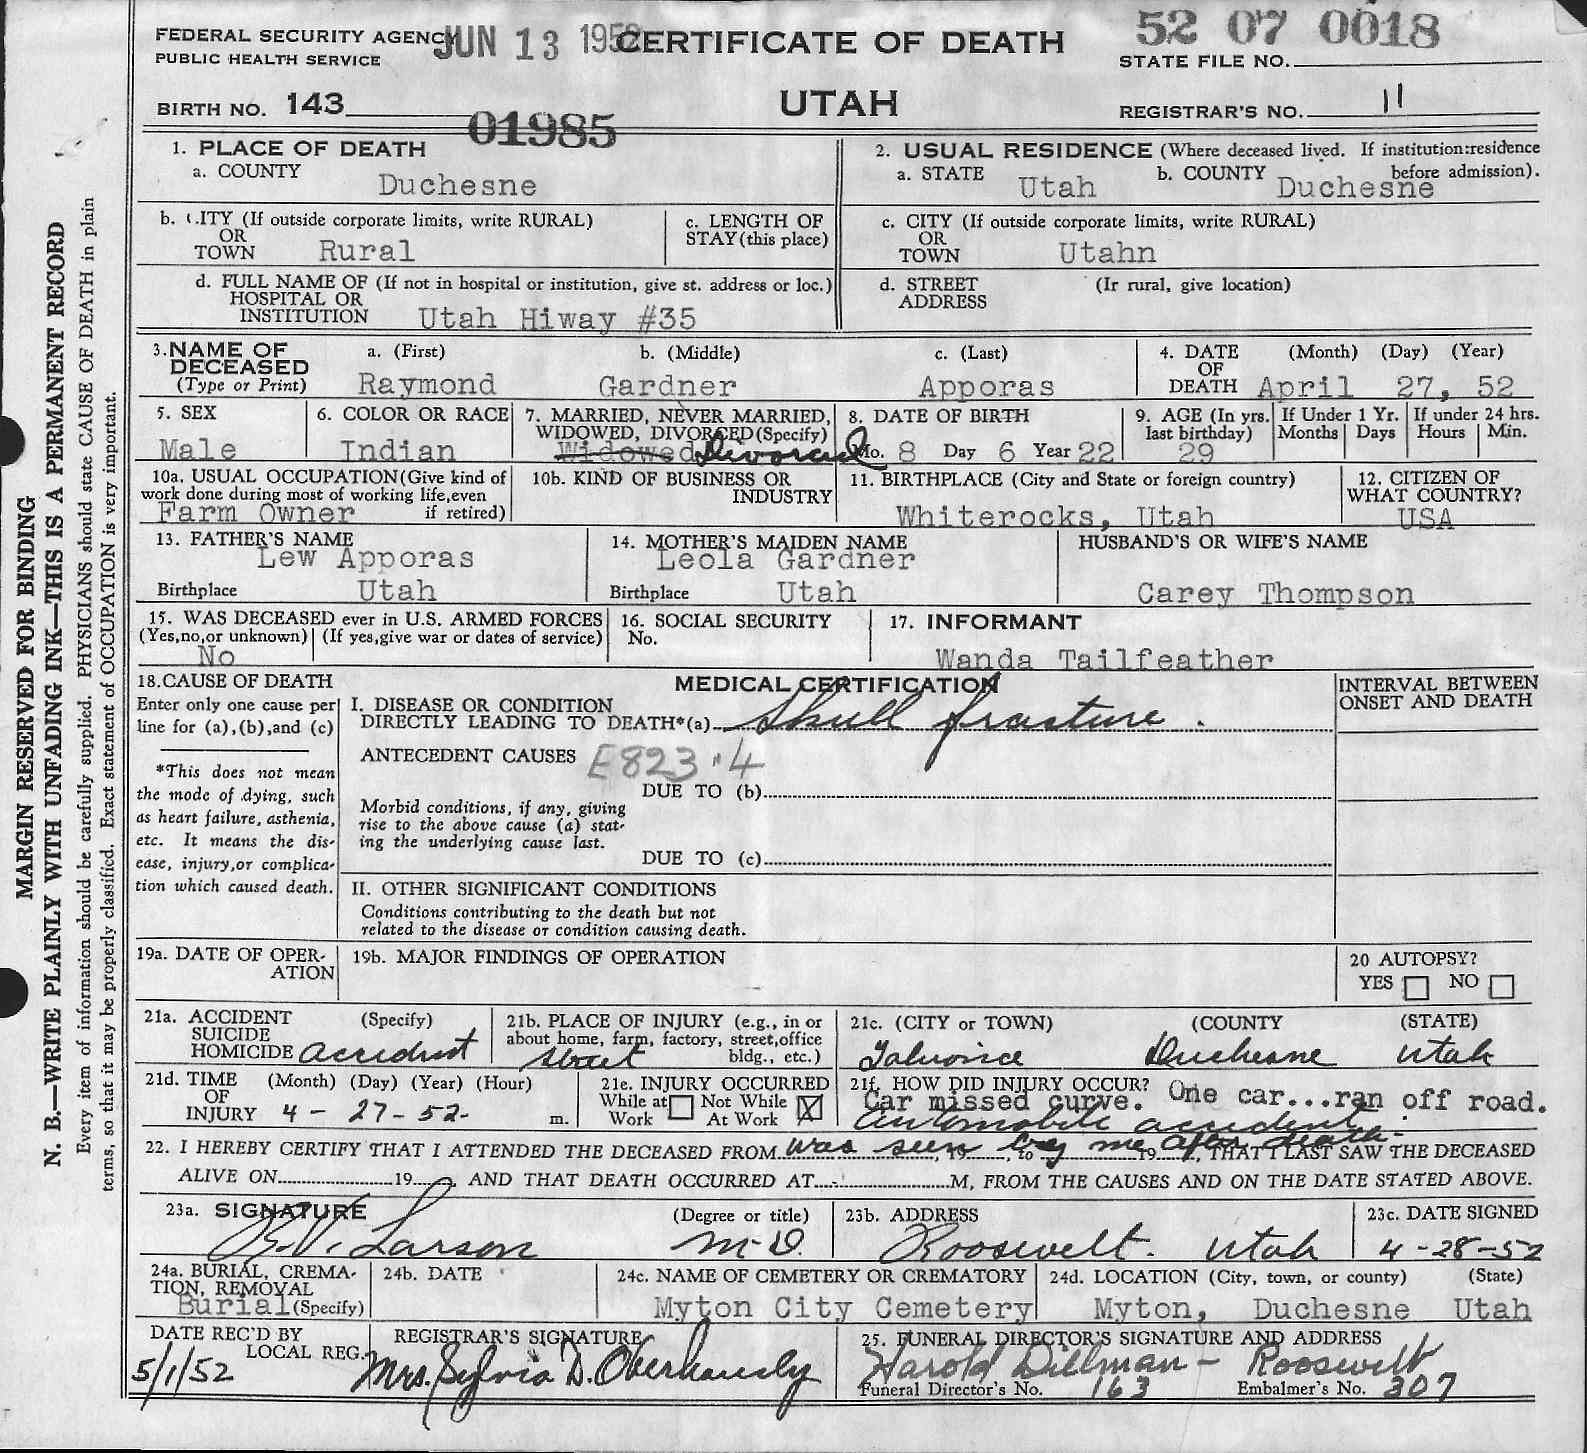 FEDERAL SECURITY AGENCY JUN 13 1952 CERTIFICATE OF DEATH 52 07 0018
PUBLIC HEALTH SERVICE STATE FILE NO.
BIRTH NO. 143 UTAH REGISTRAR'S NO. 11
01985
1. PLACE OF DEATH
a. COUNTY Duchesne
2. USUAL RESIDENCE (Where deceased lived. If institution:residence before admission).
a. STATE Utah b. COUNTY Duchesne
b. CITY (If outside corporate limits, write RURAL)
OR
TOWN Rural
c. LENGTH OF
STAY (this place)
c. CITY (If outside corporate limits, write RURAL)
OR
TOWN Utahn
d. FULL NAME OF (If not in hospital or institution, give st. address or loc.)
HOSPITAL OR
INSTITUTION Utah Hiway #35
d. STREET (Ir rural, give location)
ADDRESS
3. NAME OF DECEASED (Type or Print)
a. (First) b. (Middle) c. (Last)
Raymond Gardner Apporas
4. DATE OF DEATH (Month) (Day) (Year)
April 27, 52
5. SEX
Male
6. COLOR OR RACE
Indian
7. MARRIED, NEVER MARRIED,
WIDOWED, DIVORCED (Specify)
Widowed Divorced
8. DATE OF BIRTH
Mo. 8 Day 6 Year 22
9. AGE (In yrs. last birthday)
29
If Under 1 Yr.
Months Days
If under 24 hrs.
Hours Min.
10a. USUAL OCCUPATION (Give kind of
work done during most of working life, even
if retired)
Farm Owner
10b. KIND OF BUSINESS OR
INDUSTRY
11. BIRTHPLACE (City and State or foreign country)
Whiterocks, Utah
12. CITIZEN OF
WHAT COUNTRY?
USA
13. FATHER'S NAME
Lew Apporas
Birthplace Utah
14. MOTHER'S MAIDEN NAME
Leola Gardner
Birthplace Utah
HUSBAND'S OR WIFE'S NAME
Carey Thompson
15. WAS DECEASED ever in U.S. ARMED FORCES
(Yes,no,or unknown) (If yes,give war or dates of service)
No
16. SOCIAL SECURITY
No.
17. INFORMANT
Wanda Tailfeather
18. CAUSE OF DEATH
Enter only one cause per
line for (a),(b),and (c)
*This does not mean
the mode of dying, such
as heart failure, asthenia,
etc. It means the dis-
ease, injury,or complica-
tion which caused death.
MEDICAL CERTIFICATION
I. DISEASE OR CONDITION
DIRECTLY LEADING TO DEATH*(a) Skull fracture.
ANTECEDENT CAUSES E823.4
DUE TO (b)
Morbid conditions, if any, giving
rise to the above cause (a) stat-
ing the underlying cause last.
DUE TO (c)
II. OTHER SIGNIFICANT CONDITIONS
Conditions contributing to the death but not
related to the disease or condition causing death.
INTERVAL BETWEEN
ONSET AND DEATH
19a. DATE OF OPER-
ATION
19b. MAJOR FINDINGS OF OPERATION
20 AUTOPSY?
YES NO
21a. ACCIDENT (Specify)
SUICIDE
HOMICIDE accident
21b. PLACE OF INJURY (e.g., in or
about home, farm, factory, street,office
bldg., etc.)
street
21c. (CITY or TOWN) (COUNTY (STATE)
Duchesne Utah
21d. TIME (Month) (Day) (Year) (Hour)
OF
INJURY 4-27-52. m.
21e. INJURY OCCURRED
While at Work Not While At Work
21f. HOW DID INJURY OCCUR?
Car missed curve. One car...ran off road.
automobile accident.
22. I HEREBY CERTIFY THAT I ATTENDED THE DECEASED FROM was seen, 19 , to by me 19 after death. , THAT I LAST SAW THE DECEASED
ALIVE ON 19 , AND THAT DEATH OCCURRED AT M, FROM THE CAUSES AND ON THE DATE STATED ABOVE.
23a. SIGNATURE (Degree or title)
R.V. Larson M.D.
23b. ADDRESS
Roosevelt. Utah
23c. DATE SIGNED
4-28-52
24a. BURIAL, CREMA-
TION, REMOVAL
Burial (Specify)
24b. DATE
24c. NAME OF CEMETERY OR CREMATORY
Myton City Cemetery
24d. LOCATION (City, town, or county) (State)
Myton, Duchesne Utah
DATE REC'D BY
LOCAL REG.
5/1/52
REGISTRAR'S SIGNATURE
Mrs. Sylvia D. Oberhansly
25. FUNERAL DIRECTOR'S SIGNATURE AND ADDRESS
Harold Dillman - Roosevelt
Funeral Director's No. 163 Embalmer's No. 307
MARGIN RESERVED FOR BINDING
N. B.—WRITE PLAINLY WITH UNFADING INK—THIS IS A PERMANENT RECORD
Every item of information should be carefully supplied. PHYSICIANS should state CAUSE OF DEATH in plain
terms, so that it may be properly classified. Exact statement of OCCUPATION is very important.